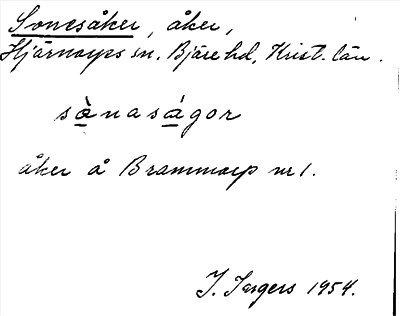 Sonesåker, åker,
Hjärnarps sn, Bjäre hd, Krist. län.
sànaságor
åker å Brammarp nr 1.
J. Sargers 1954.